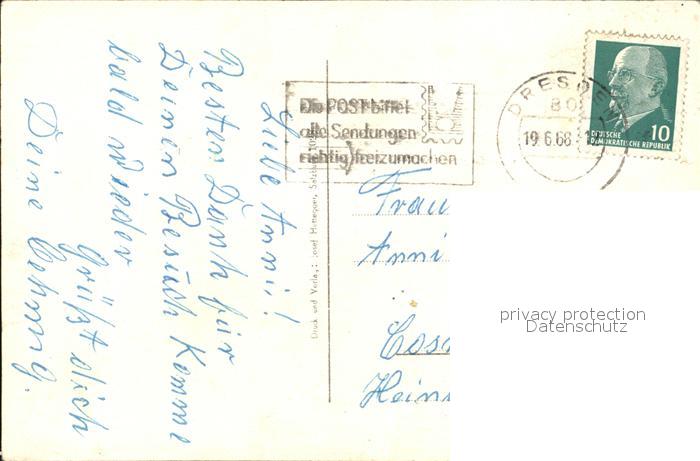 Liebe Anni!
Besten Dank für
Deinen Besuch Komme
bald wieder
Grüßt dich
Deine
Druck und Verlag: Josef Salzburg
Die POST bittet
alle Sendungen
richtig freizumachen
DRESDEN
19.6.68
10
DEUTSCHE
DEMOKRATISCHE REPUBLIK
Frau
Anni
Cos
Hein
privacy protection
Datenschutz